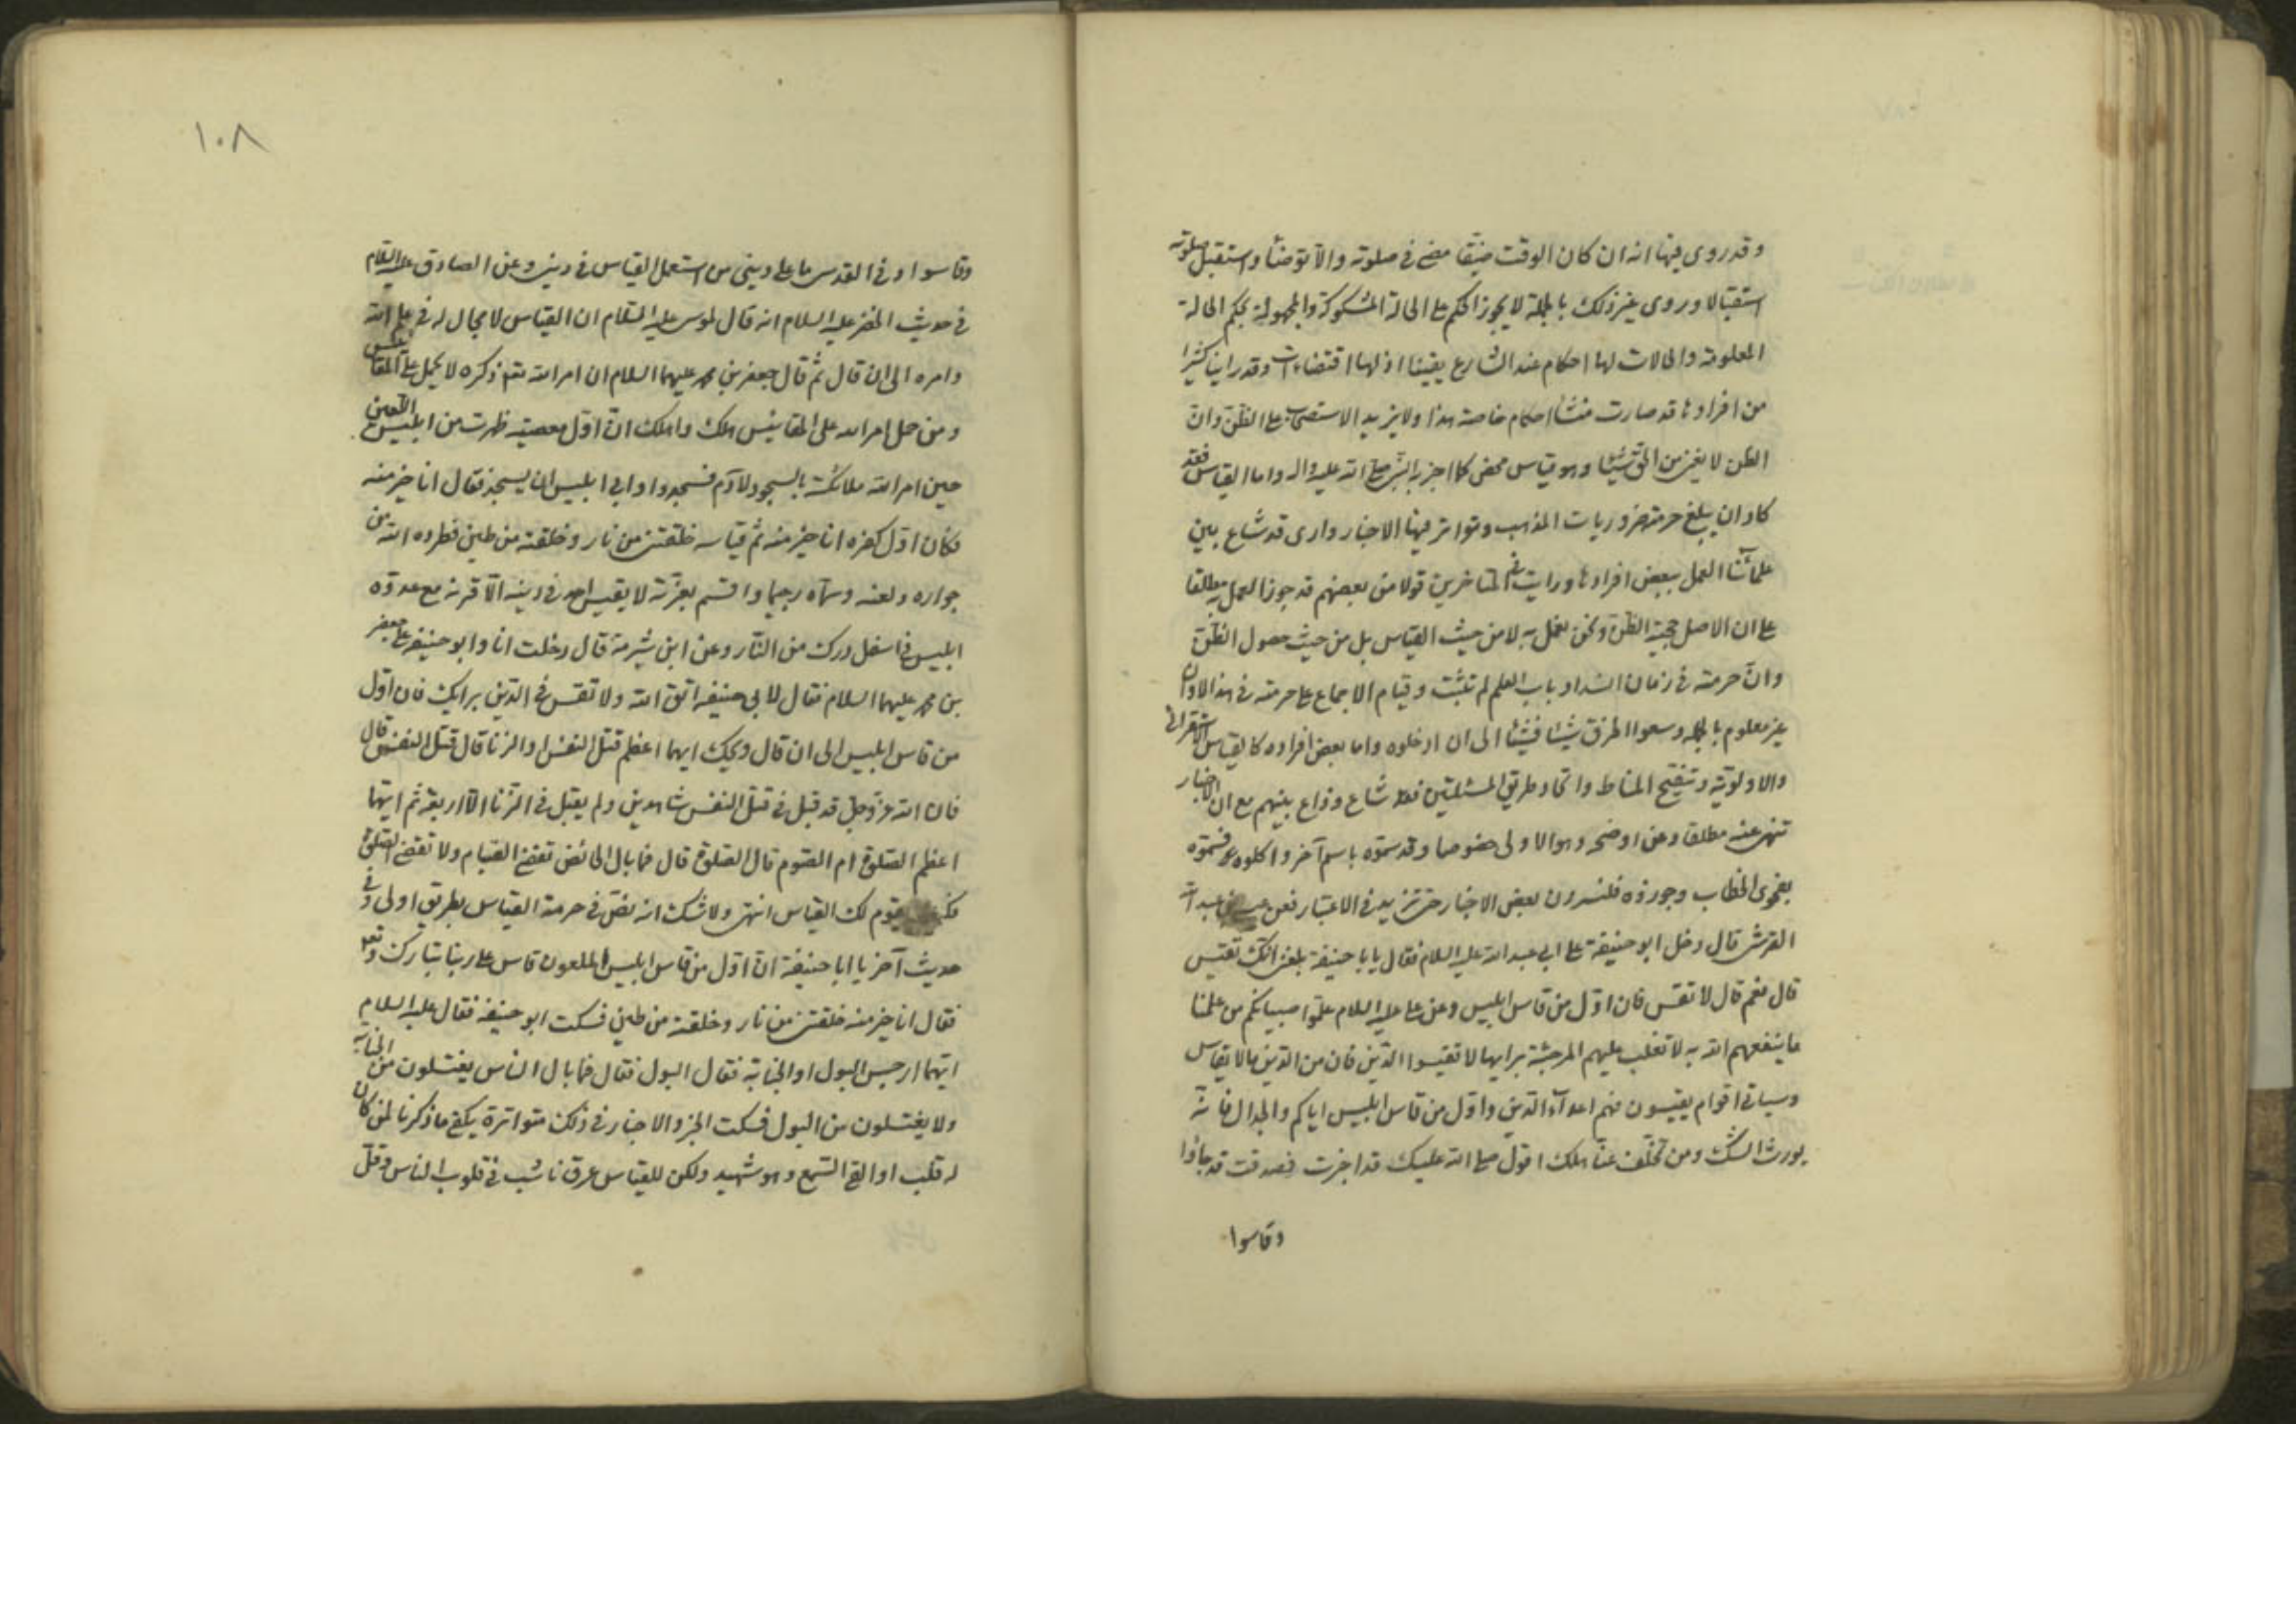 وقد روى فيها انه ان كان الوقت ضيقا مضى في صلوته والا توضأ واستقبل صلوته
استقبالا وروى غير ذلك بالجملة لا يجوز الحكم على الحالة المشكوكة والمجهولة بحكم الحالة
المعلومة والحالات لها احكام عند الشارع يقينا اذ لها اقتضاءات وقد راينا كثيرا
من افرادها قد صارت منشأ احكام خاصة هذا ولا يزيد الاستصحاب على الظن وان
الظن لا يغني من الحق شيئا وهو قياس محض كما اخبر به النبي صلى الله عليه واله واما القياس فقد
كاد ان يبلغ حرمته ضروريات المذهب وتواتر فيها الاخبار وارى قد شاع بين
علمائنا العمل ببعض افرادها ورايت في المتاخرين قولا من بعضهم قد جوز العمل به مطلقا
على ان الاصل حجية الظن ونحن نعمل به لا من حيث القياس بل من حيث حصول الظن
وان حرمته في زمان انسداد باب العلم لم تثبت وقيام الاجماع على حرمته في هذا الاوان
غير معلوم بالجمله وسعوا الطرق شيئا فشيئا الى ان ادخلوه واما بعض افراده كالقياس الاستقرائى
والاولوية وتنقيح المناط واتحاد طريق المسئلتين فقد شاع وذاع بينهم مع ان الاخبار
تنهى عنه مطلقا وعن اوضحه وهو الاولى خصوصا وقد سموه باسم آخر واكلوه فسموه
بفحوى الخطاب وجوزوه فلنسرد بعض الاخبار حتى تزيد في الاعتبار فعن عيسى بن عبد الله
القرشى قال دخل ابو حنيفة على ابي عبد الله عليه السلام فقال يا با حنيفة بلغنى انك تقيس
قال نعم قال لا تقس فان اول من قاس ابليس وعن على عليه السلام علموا صبيانكم من علمنا
ما ينفعهم الله به لا تغلب عليهم المرجئة برايها لا تقيسوا الدين فان من الدين ما لا يقاس
وسياتى اقوام يقيسون فهم اعداء الدين واول من قاس ابليس اياكم والجدال فانه
يورث الشك ومن تخلف عنا هلك اقول صلى الله عليك قد اخبرت فصدقت قد جاؤا
وقاسوا
١٠٨
وقاسوا وفي القدسى ما على دينى من استعمل القياس في دينى وعن الصادق عليه السلام
في حديث الخضر عليه السلام انه قال لموسى عليه السلام ان القياس لا مجال له في علم الله
وامره الى ان قال ثم قال جعفر بن محمد عليهما السلام ان امر الله تعالى ذكره لا يحمل على المقائيس
ومن حمل امر الله على المقائيس هلك واهلك ان اول معصية ظهرت من ابليس اللعين
حين امر الله ملائكته بالسجود لآدم فسجدوا وابى ابليس ان يسجد فقال انا خير منه
فكان اول كفره انا خير منه ثم قياسه خلقتنى من نار وخلقته من طين فطرده الله من
جواره ولعنه وسماه رجيما واقسم بعزته لا يقيس احد في دينه الا قرنه مع عدوه
ابليس في اسفل درك من النار وعن ابن شبرمة قال دخلت انا وابو حنيفه على جعفر
بن محمد عليهما السلام فقال لابى حنيفه اتق الله ولا تقس في الدين برايك فان اول
من قاس ابليس الى ان قال ويحك ايهما اعظم قتل النفس او الزنا قال قتل النفس قال
فان الله عز وجل قد قبل في قتل النفس شاهدين ولم يقبل في الزنا الا اربعة ثم ايتها
اعظم الصلوة ام الصوم قال الصلوة قال فما بال الحائض تقضى الصيام ولا تقضى الصلوة
فكيف يقوم لك القياس انتهى ولا شك انه نص في حرمة القياس بطريق اولى وفي
حديث آخر يا ابا حنيفة ان اول من قاس ابليس الملعون قاس على ربنا تبارك وتعالى
فقال انا خير منه خلقتنى من نار وخلقته من طين فسكت ابو حنيفه فقال عليه السلام
ايهما ارجس البول او الجنابة فقال البول فقال فما بال الناس يغتسلون من الجنابة
ولا يغتسلون من البول فسكت الخبر والاخبار في ذلك متواترة يكفى ما ذكرنا لمن كان
له قلب او القى السمع وهو شهيد ولكن للقياس عرق ناشب في قلوب الناس وقل